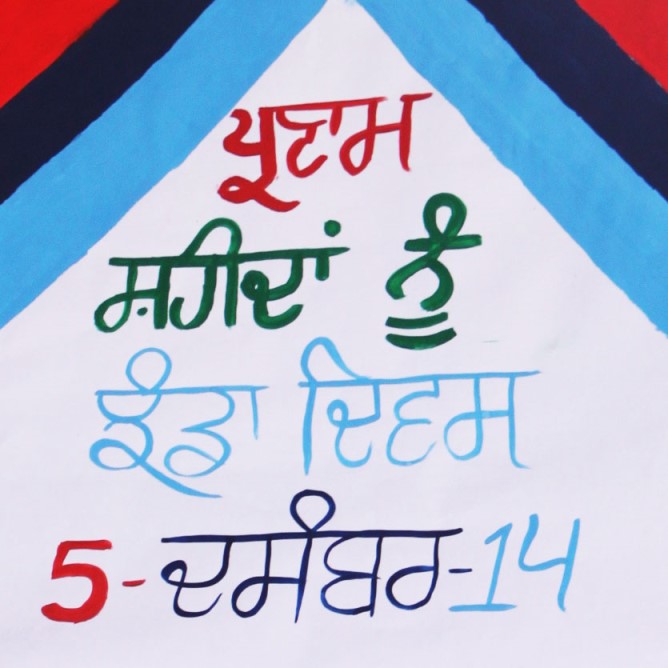 ਪ੍ਰਣਾਮ
ਸ਼ਹੀਦਾਂ ਨੂੰ
ਝੰਡਾ ਦਿਵਸ
5-ਦਸੰਬਰ-14